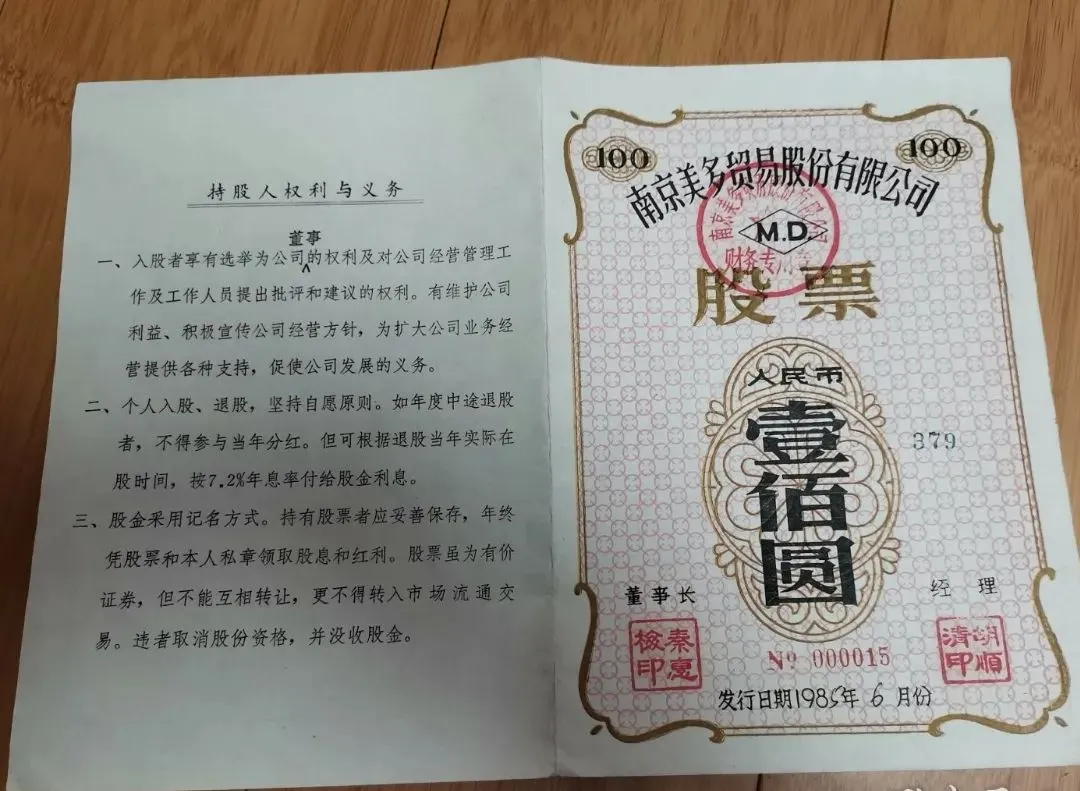 持股人权利与义务
董事
一、入股者享有选举为公司的权利及对公司经营管理工
作及工作人员提出批评和建议的权利。有维护公司
利益、积极宣传公司经营方针，为扩大公司业务经
营提供各种支持，促使公司发展的义务。
二、个人入股、退股，坚持自愿原则。如年度中途退股
者，不得参与当年分红。但可根据退股当年实际在
股时间，按7.2%年息率付给股金利息。
三、股金采用记名方式。持有股票者应妥善保存，年终
凭股票和本人私章领取股息和红利。股票虽为有价
证券，但不能互相转让，更不得转入市场流通交
易。违者取消股份资格，并没收股金。
100
100
南京美多贸易股份有限公司
M.D
财务专用章
股票
人民币
壹佰圆
379
董事长
经理
秦惠
检印
胡顺
清印
Nº 000015
发行日期1985年6月份